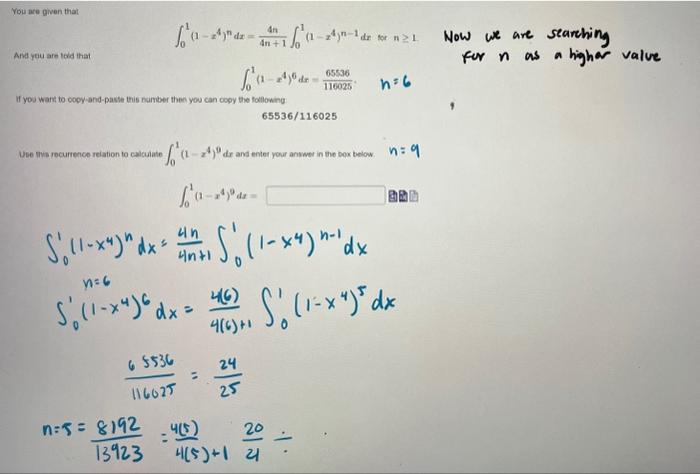 You are given that
∫₀¹ (1 − x⁴)ⁿ dx = 4n/(4n + 1) ∫₀¹ (1 − x⁴)ⁿ⁻¹ dx for n ≥ 1.
Now we are searching
for n as a higher value
And you are told that
∫₀¹ (1 − x⁴)⁶ dx = 65536/116025. n=6
If you want to copy-and-paste this number then you can copy the folllowing:
65536/116025
Use this recurrence relation to calculate ∫₀¹ (1 − x⁴)⁹ dx and enter your answer in the box below. n=9
∫₀¹ (1 − x⁴)⁹ dx =
∫₀¹ (1-x⁴)ⁿ dx = 4n/4n+1 ∫₀¹ (1-x⁴)ⁿ⁻¹ dx
n=6
∫₀¹ (1-x⁴)⁶ dx = 4(6)/4(6)+1 ∫₀¹ (1-x⁴)⁵ dx
65536/116025 = 24/25
n=5 = 8192/13923 = 4(5)/4(5)+1 20/21 ÷